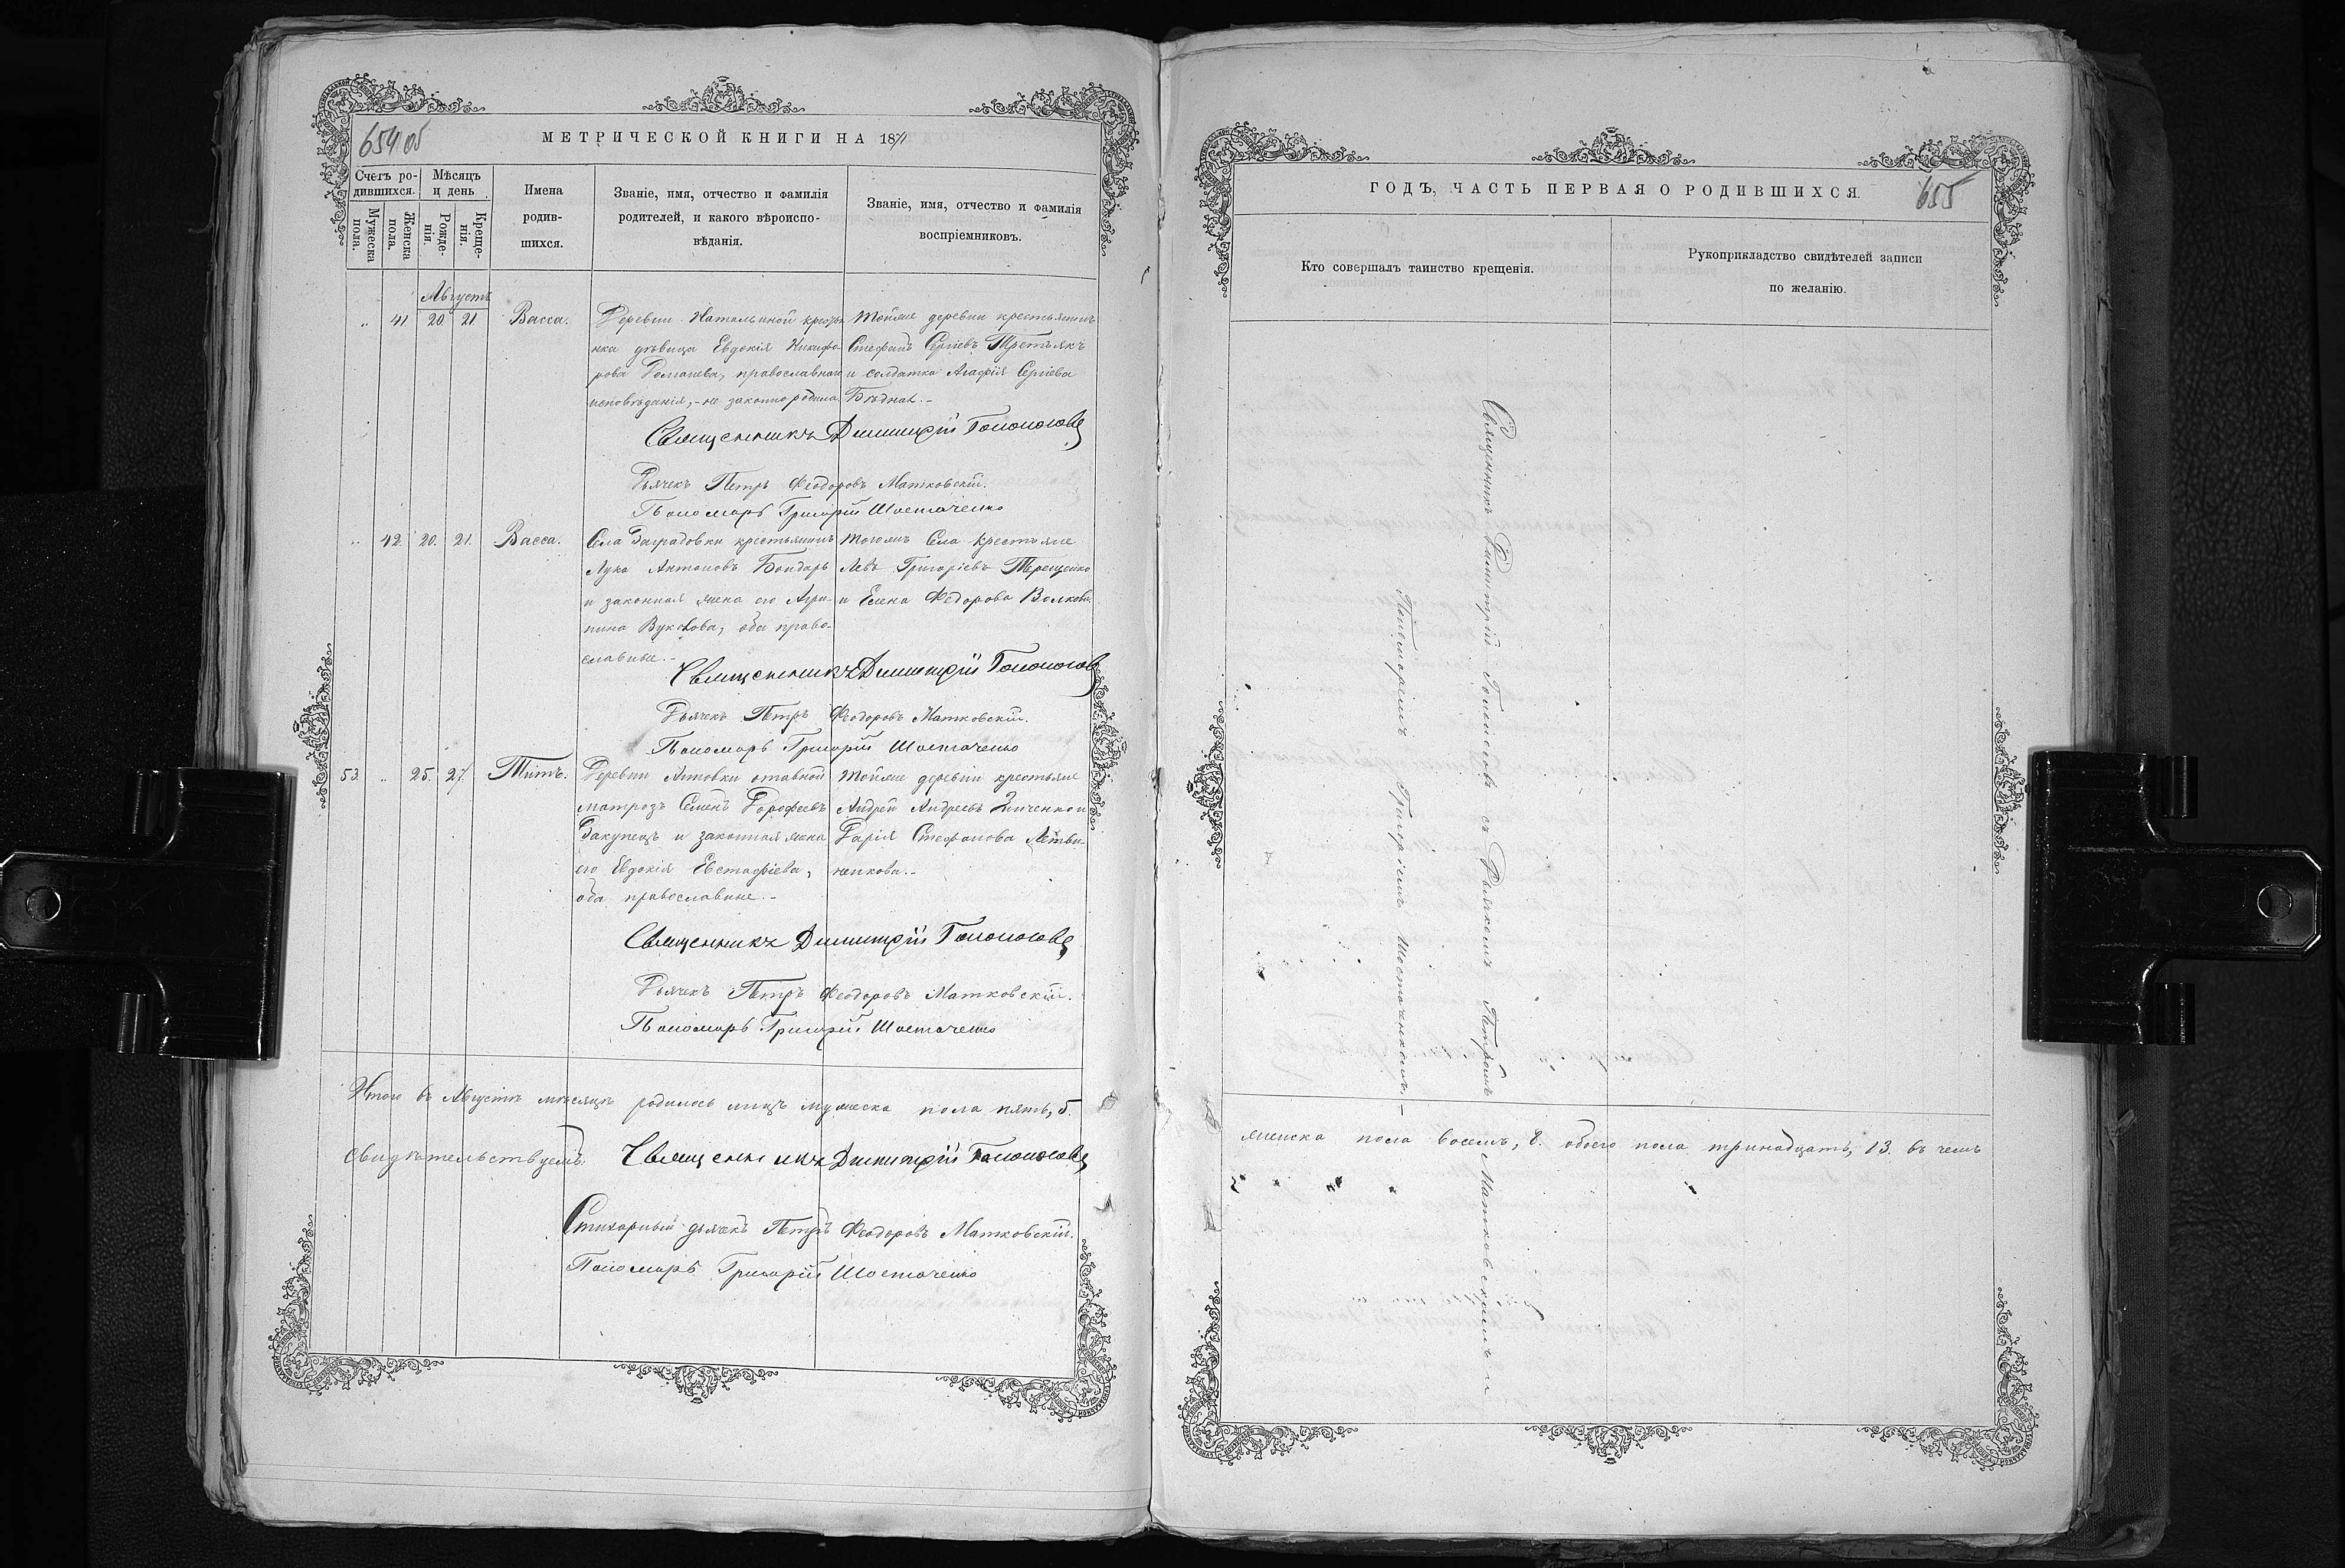 654 об
МЕТРИЧЕСКОЙ КНИГИ НА 1871
Счетъ ро-
дившихся.
Мѣсяцъ
и день
Мужеска
пола.
Женска
пола.
Рожде-
нія.
Креще-
нія.
Имена
родив-
шихся.
Званіе, имя, отчество и фамилія
родителей, и какого вѣроиспо-
вѣданія.
Званіе, имя, отчество и фамилія
воспріемниковъ.
Августъ
„ 41 20. 21. Васса.
Деревни Натальиной крестьян
ка дѣвица Евдокія Никифо-
рова, православнаго
исповѣданія, - не законно родила
Тойже деревни крестьянинъ
Стефанъ Сергіевъ Третьякъ
и солдатка Агафія Сергіева
Бѣдная. -
Священникъ Димитрій Голоносовъ
Дьячекъ Петръ Феодоровъ Матковскій.
Пономарь Григорій Шостаченко
„ 42. 20. 21. Васса.
Села Заградовки крестьянинъ
Лука Антоновъ Бондарь
и законная жена его Агри-
пина Вуколова, оба право-
славные. -
Тогожъ Села Крестьяне
Левъ Григоріевъ Терещенко
и Елена Федорова Волкова
Священникъ Димитрій Голоносовъ
Дьячекъ Петръ Феодоровъ Матковскій.
Пономарь Григорій Шостаченко
53. „ 25. 27. Титъ.
Деревни отавной
матрозъ Семенъ Дорофеевъ
Закупецъ и законная жена
его Евдокія Евстафіева,
оба православные. -
Тойже деревни крестьяне
Андрей Андреевъ и
Дарія Стефанова Летви-
ненкова. -
Священникъ Димитрій Голоносовъ
Дьячекъ Петръ Феодоровъ Матковскій.
Пономарь Григорій Шостаченко
Итого въ Августѣ мѣсяцѣ родилось лицъ мужеска пола пять, 5.
Свидѣтельствуемъ: Священникъ Димитрій Голоносовъ
Стихарный дьячекъ Петръ Феодоровъ Матковскій.
Пономарь Григорій Шостаченко
ГОДЪ, ЧАСТЬ ПЕРВАЯ О РОДИВШИХСЯ.
655
Кто совершалъ таинство крещенія.
Рукоприкладство свидѣтелей записи
по желанію.
Священникъ Димитрій Голоносовъ съ Дьячкомъ Петромъ Матковскимъ и
Пономаремъ Григоріемъ Шостаченкомъ. -
женска пола восемь, 8. обоего пола тринадцать, 13. въ чемъ